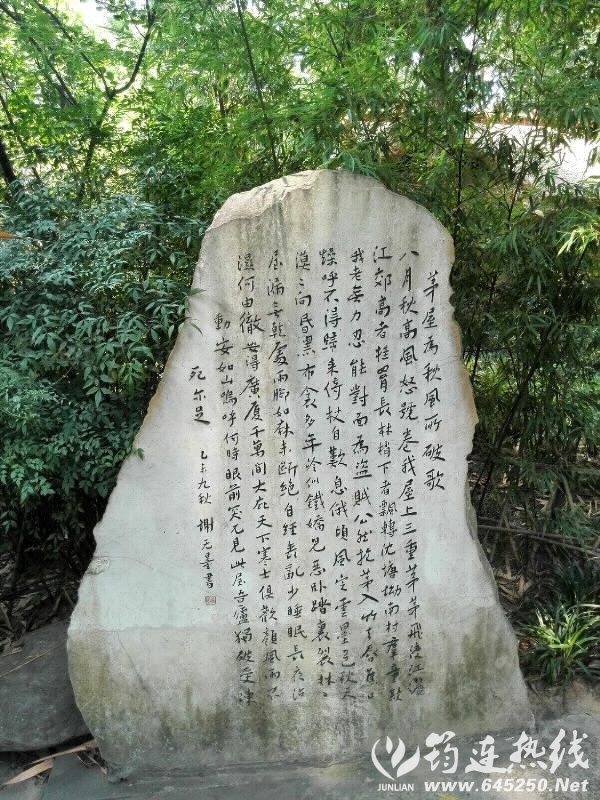 茅屋為秋風所破歌
八月秋高風怒號卷我屋上三重茅茅飛渡江灑
江郊高者挂罥長林梢下者飄轉沈塘坳南村群童欺
我老無力忍能對面為盜賊公然抱茅入竹去唇焦口
燥呼不得歸來倚杖自歎息俄頃風定雲墨色秋天
漠〻向昏黑布衾多年冷似鐵嬌兒惡卧踏裏裂牀〻
屋漏無乾處雨脚如麻未斷絕自經喪亂少睡眠長夜沾
濕何由徹安得廣厦千萬間大庇天下寒士俱歡顏風雨不
動安如山嗚呼何時眼前突兀見此屋吾廬獨破受凍
死亦足 乙未九秋 謝无量書
筠连热线
JUNLIAN www.645250.Net